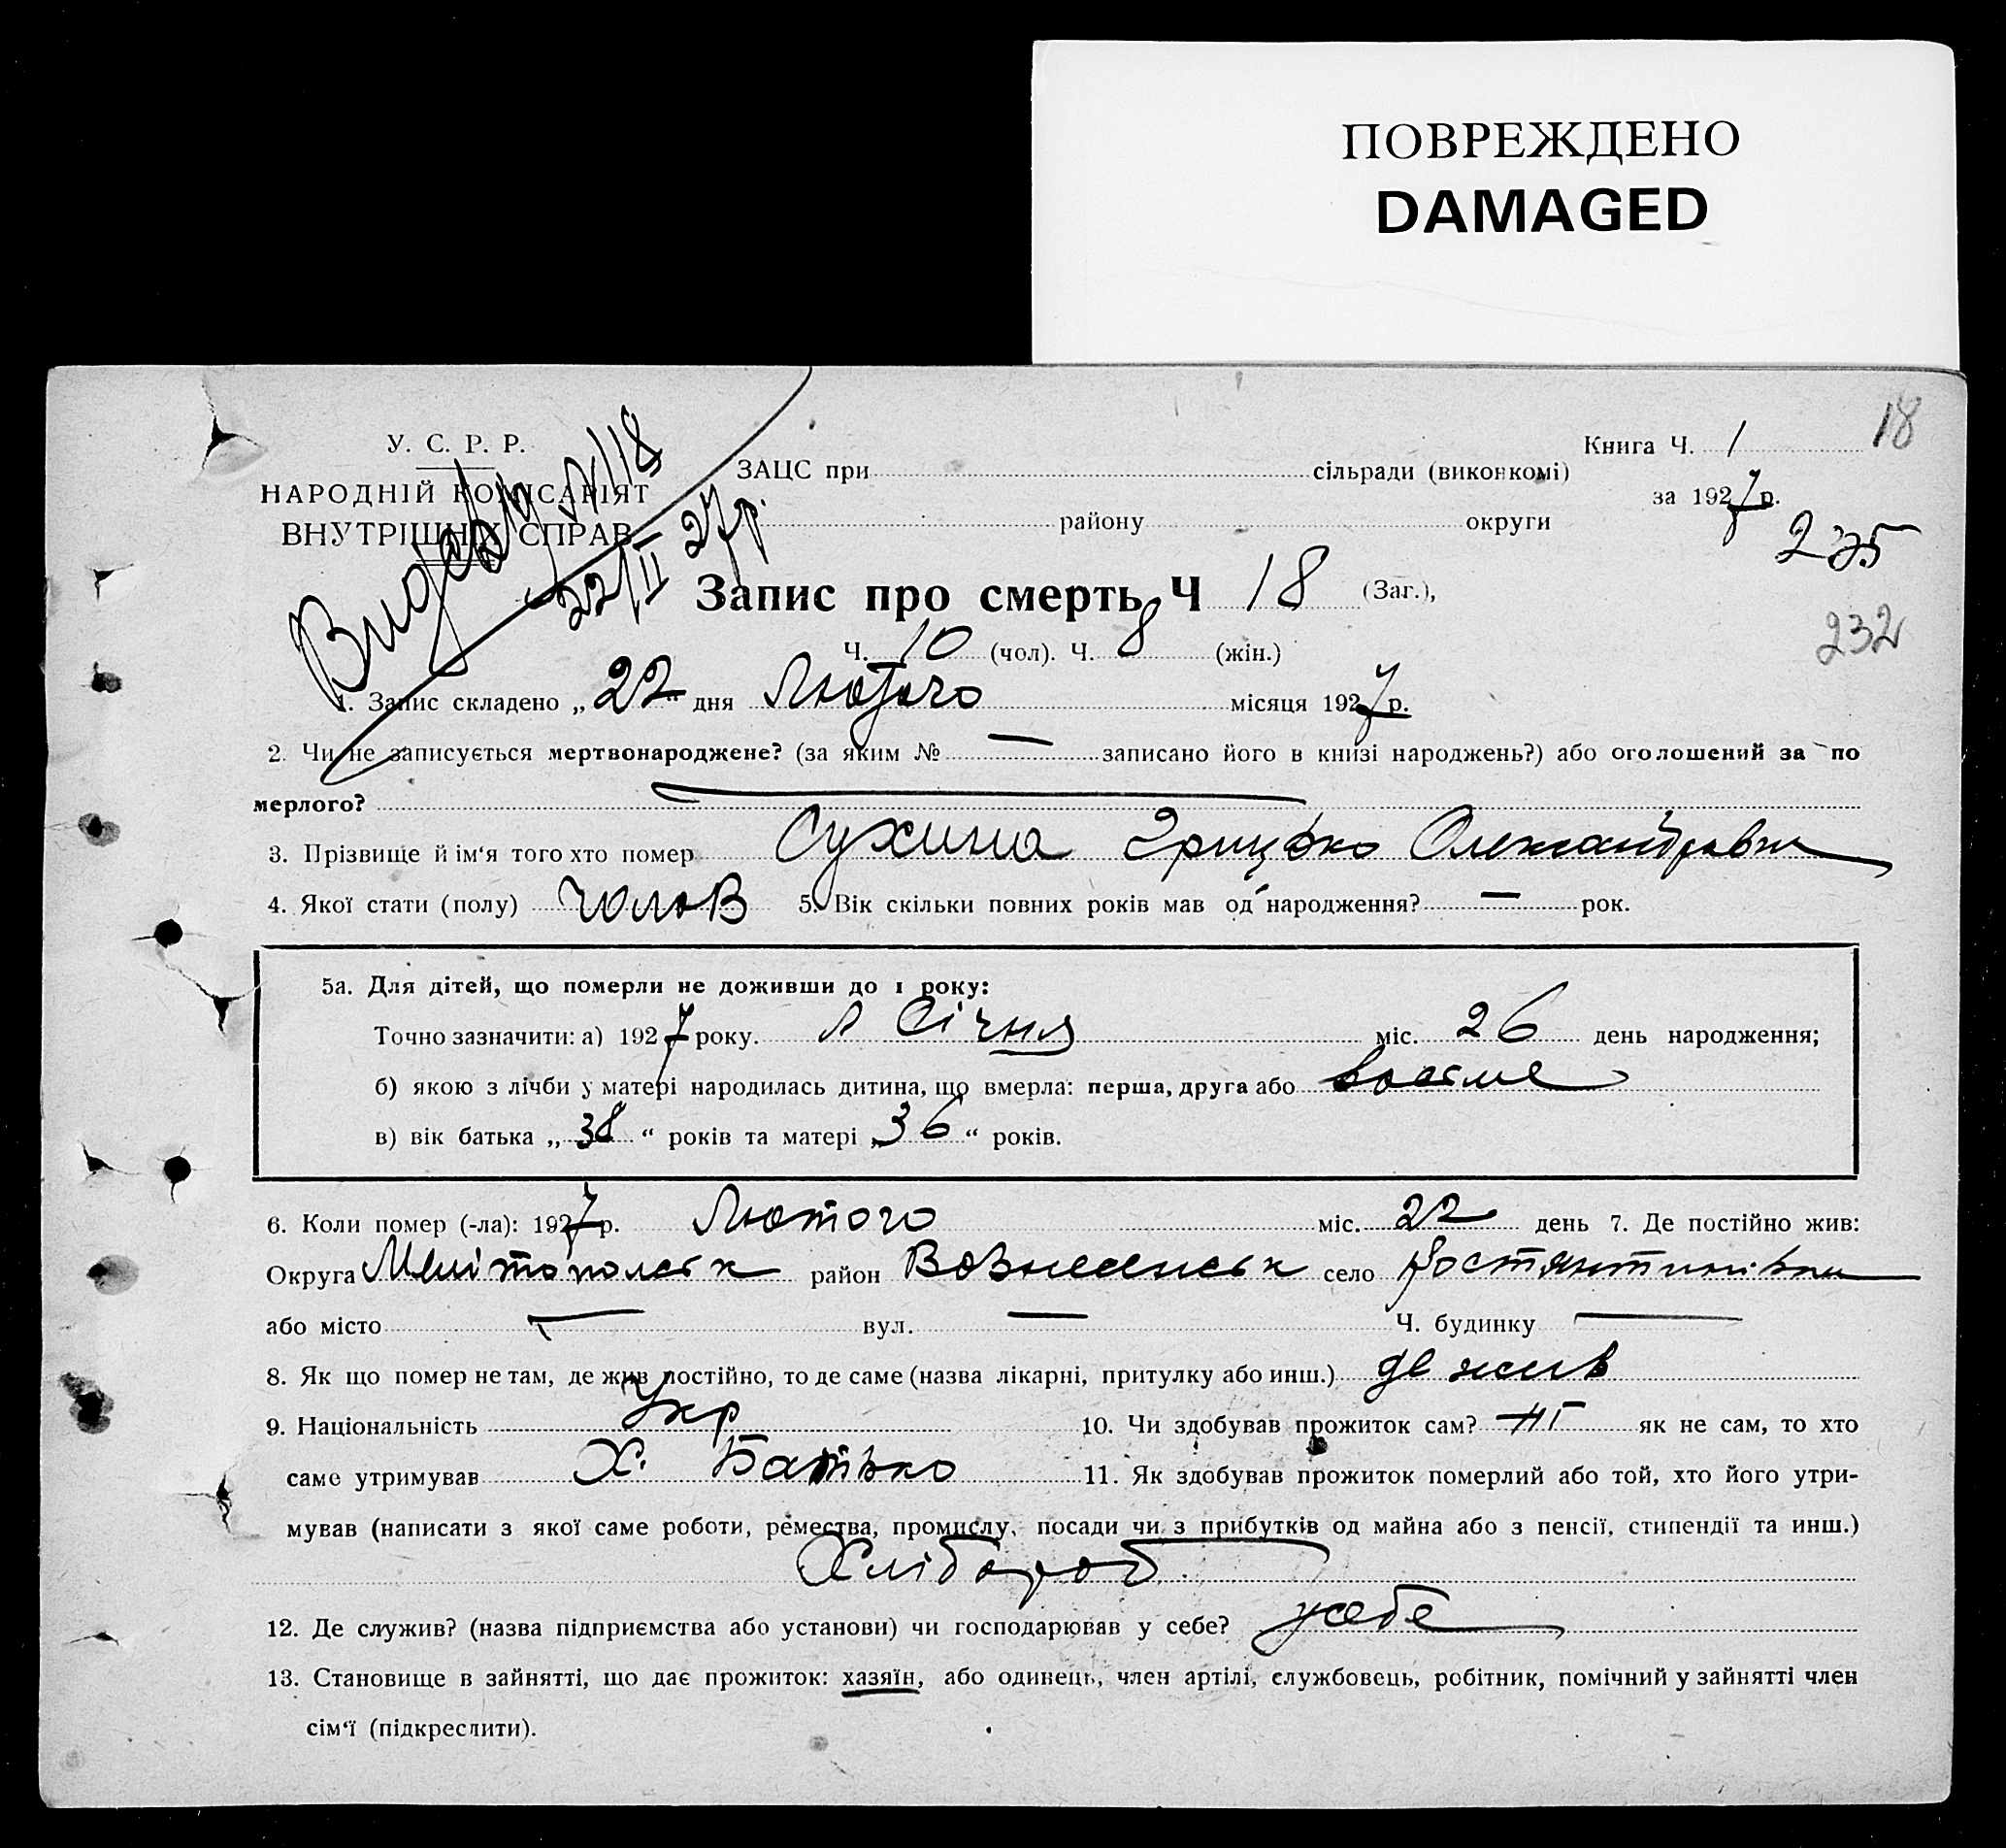 ПОВРЕЖДЕНО
DAMAGED
18
У. С. Р. Р.
НАРОДНІЙ КОМІСАРІЯТ
ВНУТРІШНІХ СПРАВ
№ 118
22/II 27р.
ЗАЦС при сільради (виконкомі)
району округи
Книга Ч. 1
за 1927 р.
235
232
Запис про смерть Ч 18 (Заг.),
Ч. 10 (чол). Ч. 8 (жін.)
1. Запис складено „22“ дня Лютого місяця 1927 р.
2. Чи не записується мертвонароджене? (за яким № — записано його в книзі народжень?) або оголошений за по
мерлого?
3. Прізвище й ім‘я того хто помер Сухина Грицько Олександрович
4. Якої стати (полу) чолов 5. Вік скільки повних років мав од народження? — рок.
5а. Для дітей, що померли не доживши до 1 року:
Точно зазначити: а) 1927 року. Січня міс. 26 день народження;
б) якою з лічби у матері народилась дитина, що вмерла: перша, друга або восьме
в) вік батька „38“ років та матері „36“ років.
6. Коли помер (-ла): 1927 р. Лютого міс. 22 день 7. Де постійно жив:
Округа Мелітопольськ район Вознесенськ село Костянтинівка
або місто — вул. — Ч. будинку —
8. Як що помер не там, де жив постійно, то де саме (назва лікарні, притулку або инш.) де жив
9. Національність Укр 10. Чи здобував прожиток сам? НІ як не сам, то хто
саме утримував Х. Батько 11. Як здобував прожиток померлий або той, хто його утри-
мував (написати з якої саме роботи, ремества, промислу, посади чи з прибутків од майна або з пенсії, стипендії та инш.)
Хлібороб
12. Де служив? (назва підприємства або установи) чи господарював у себе? у себе
13. Становище в зайнятті, що дає прожиток: хазяїн, або одинець, член артілі, службовець, робітник, помічний у зайнятті член
сім‘ї (підкреслити).